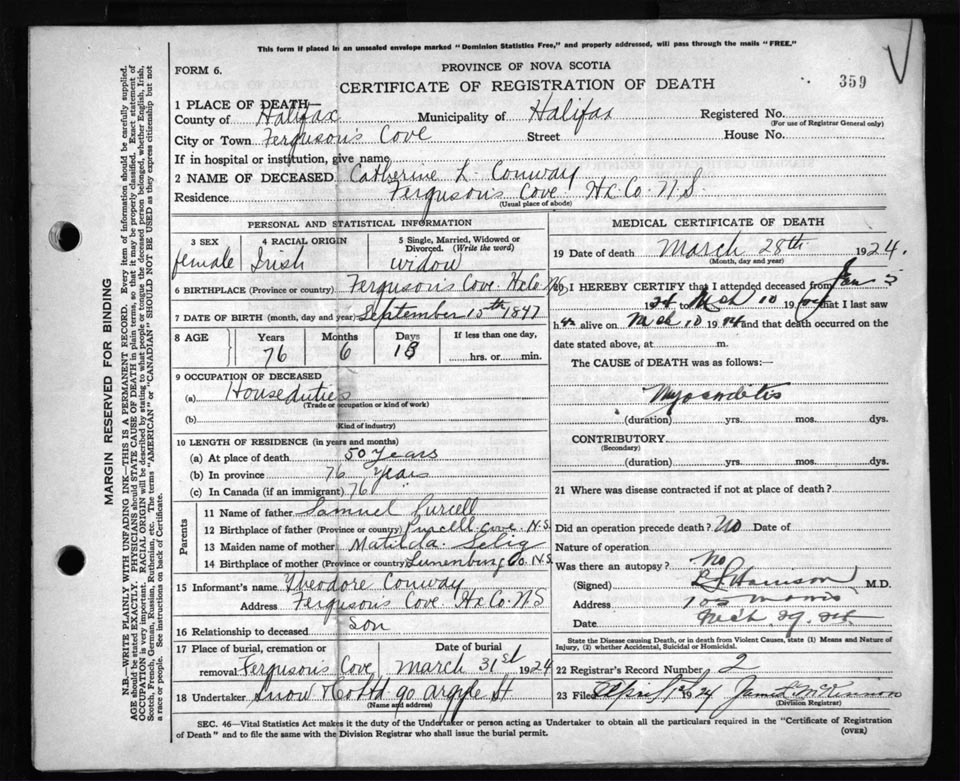 This form if placed in an unsealed envelope marked "Dominion Statistics Free," and properly addressed, will pass through the mails "FREE."
FORM 6.
PROVINCE OF NOVA SCOTIA
CERTIFICATE OF REGISTRATION OF DEATH
359
1 PLACE OF DEATH—
County of Halifax Municipality of Halifax Registered No.
(For use of Registrar General only)
City or Town Ferguson's Cove Street House No.
If in hospital or institution, give name
2 NAME OF DECEASED Catherine L. Conway
Residence Ferguson's Cove Hx Co. N.S.
(Usual place of abode)
PERSONAL AND STATISTICAL INFORMATION
3 SEX female
4 RACIAL ORIGIN Irish
5 Single, Married, Widowed or Divorced. (Write the word) widow
6 BIRTHPLACE (Province or country) Ferguson's Cove. Hx Co N.S.
7 DATE OF BIRTH (month, day and year) September 15th 1847
8 AGE Years Months Days If less than one day,
76 6 13 hrs. or min.
9 OCCUPATION OF DECEASED
(a) House duties
(Trade or occupation or kind of work)
(b)
(Kind of industry)
10 LENGTH OF RESIDENCE (in years and months)
(a) At place of death 50 years
(b) In province 76 years
(c) In Canada (if an immigrant) 76
Parents
11 Name of father Samuel Purcell
12 Birthplace of father (Province or country) Purcell. Cove. N.S.
13 Maiden name of mother Matilda Selig
14 Birthplace of mother (Province or country) Lunenburg Co. N.S.
15 Informant's name Theodore Conway
Address Ferguson's Cove. Hx Co. N.S
16 Relationship to deceased Son
17 Place of burial, cremation or removal Ferguson's Cove
Date of burial March 31st 1924
18 Undertaker Snow & Co Ltd 90 Argyle St
(Name and address)
MEDICAL CERTIFICATE OF DEATH
19 Date of death March 28th 1924.
(Month, day and year)
I HEREBY CERTIFY that I attended deceased from Jan 5
1924 to Mch 10 1924 that I last saw
h er alive on Mch 10 1924 and that death occurred on the
date stated above, at m.
The CAUSE of DEATH was as follows:
Myocarditis
(duration) yrs. mos. dys.
CONTRIBUTORY
(Secondary)
(duration) yrs. mos. dys.
21 Where was disease contracted if not at place of death?
Did an operation precede death? No Date of
Nature of operation
Was there an autopsy? No
(Signed) Harrison M.D.
Address 105 Morris
Date Mch 29. 24
State the Disease causing Death, or in death from Violent Causes, state (1) Means and Nature of
Injury, (2) whether Accidental, Suicidal or Homicidal.
22 Registrar's Record Number 2
23 Filed April 1st 1924 James McKinnon
(Division Registrar)
SEC. 46—Vital Statistics Act makes it the duty of the Undertaker or person acting as Undertaker to obtain all the particulars required in the "Certificate of Registration
of Death" and to file the same with the Division Registrar who shall issue the burial permit.
(OVER)
MARGIN RESERVED FOR BINDING
N.B.—WRITE PLAINLY WITH UNFADING INK—THIS IS A PERMANENT RECORD. Every item of information should be carefully supplied.
AGE should be stated EXACTLY. PHYSICIANS should STATE CAUSE OF DEATH in plain terms, so that it may be properly classified. Exact statement of
OCCUPATION is very important. RACIAL ORIGIN will be described by stating to what people or tongue the deceased person belonged, whether English, Irish,
Scotch, French, German, Russian, Ruthenian, etc. The terms "AMERICAN" or "CANADIAN" SHOULD NOT BE USED as they express citizenship but not
a race or people. See instructions on back of Certificate.